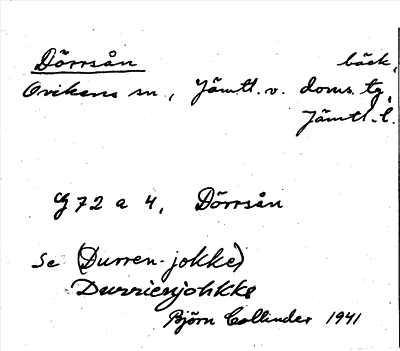 Dörrsån bäck,
Ovikens sn., Jämtl. v. doms. tg,
Jämtl. l.
G 72 a 4, Dörrsån
se (Durren-jokke)
Durrienjohke
Björn Collinder 1941